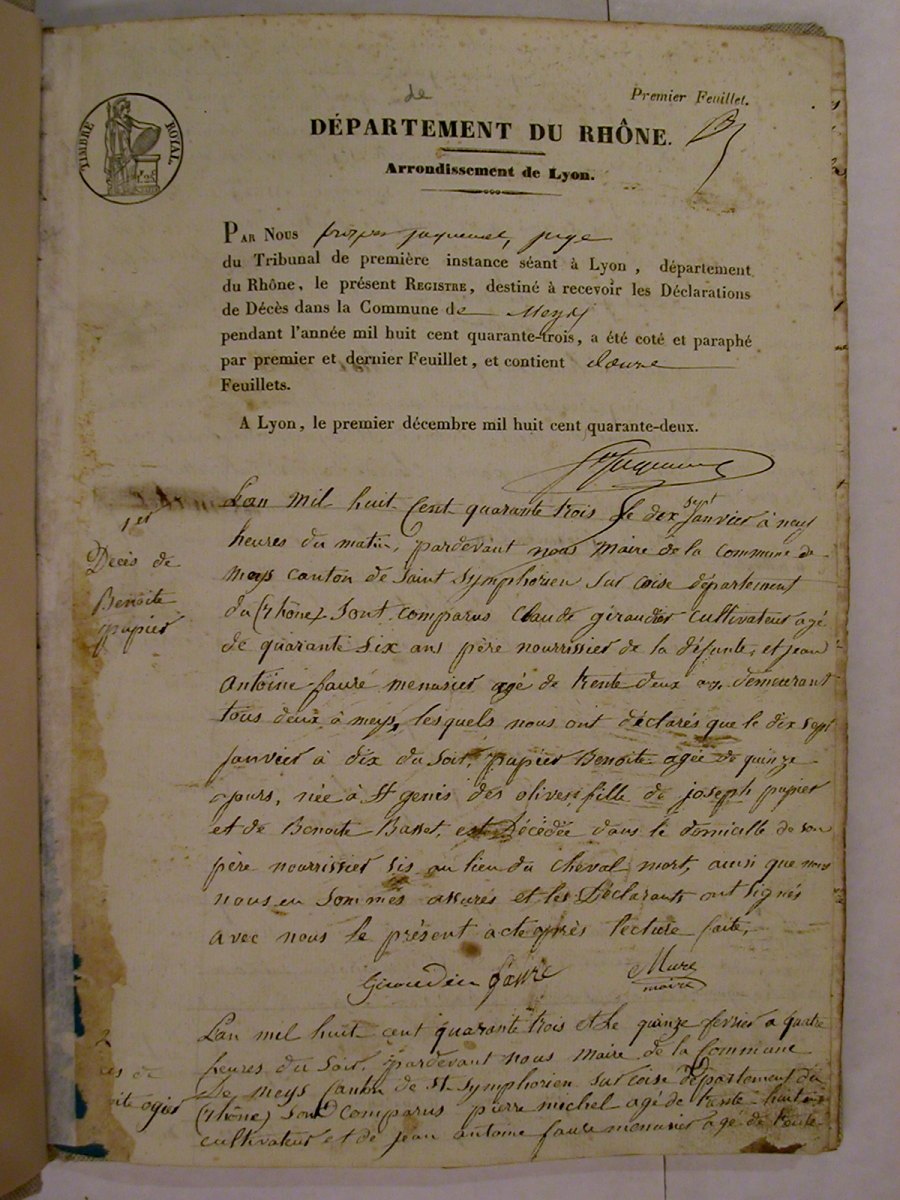 de
Premier Feuillet.
TIMBRE ROYAL
DÉPARTEMENT DU RHÔNE.
Arrondissement de Lyon.
PAR NOUS juge
du Tribunal de première instance séant à Lyon, département
du Rhône, le présent REGISTRE, destiné à recevoir les Déclarations
de Décès dans la Commune de Meys
pendant l'année mil huit cent quarante-trois, a été coté et paraphé
par premier et dernier Feuillet, et contient douze
Feuillets.
A Lyon, le premier décembre mil huit cent quarante-deux.
1er
Décès de
Benoite
papier
Lan mil huit Cent quarante trois le dix sept janvier à neuf
heures du matin, pardevant nous Maire de la Commune de
meys canton de Saint Symphorien sur coise département
du (rhône) Sont comparus Claude giraudier cultivateur agé
de quarante Six ans père nourrissier de la défunte, et jean
Antoine fauré menusier agé de trente deux ans demeurant
tous deux à meys, lesquels nous ont déclarés que le dix sept
janvier à dix du Soir, papier Benoite agée de quinze
jours, née à St genis des olives, fille de joseph papier
et de Benoite Basset, est Décédée dans le domicille de son
père nourrissier sis au lieu du cheval mort, ainsi que nous
nous en Sommes assurés et les Déclarants ont signés
avec nous le présent acte après lecture faite,
Giraudier faure Mure
maire
Lan mil huit cent quarante trois et Le quinze fevrier a quatre
heures du Soir, pardevant nous maire de la Commune
de meys Canton de St Symphorien sur coise département du
(rhône) Sont Comparus pierre michel agé de trente huit ans
cultivateur et de jean antoine faure menusier agé de trente
2
ogier